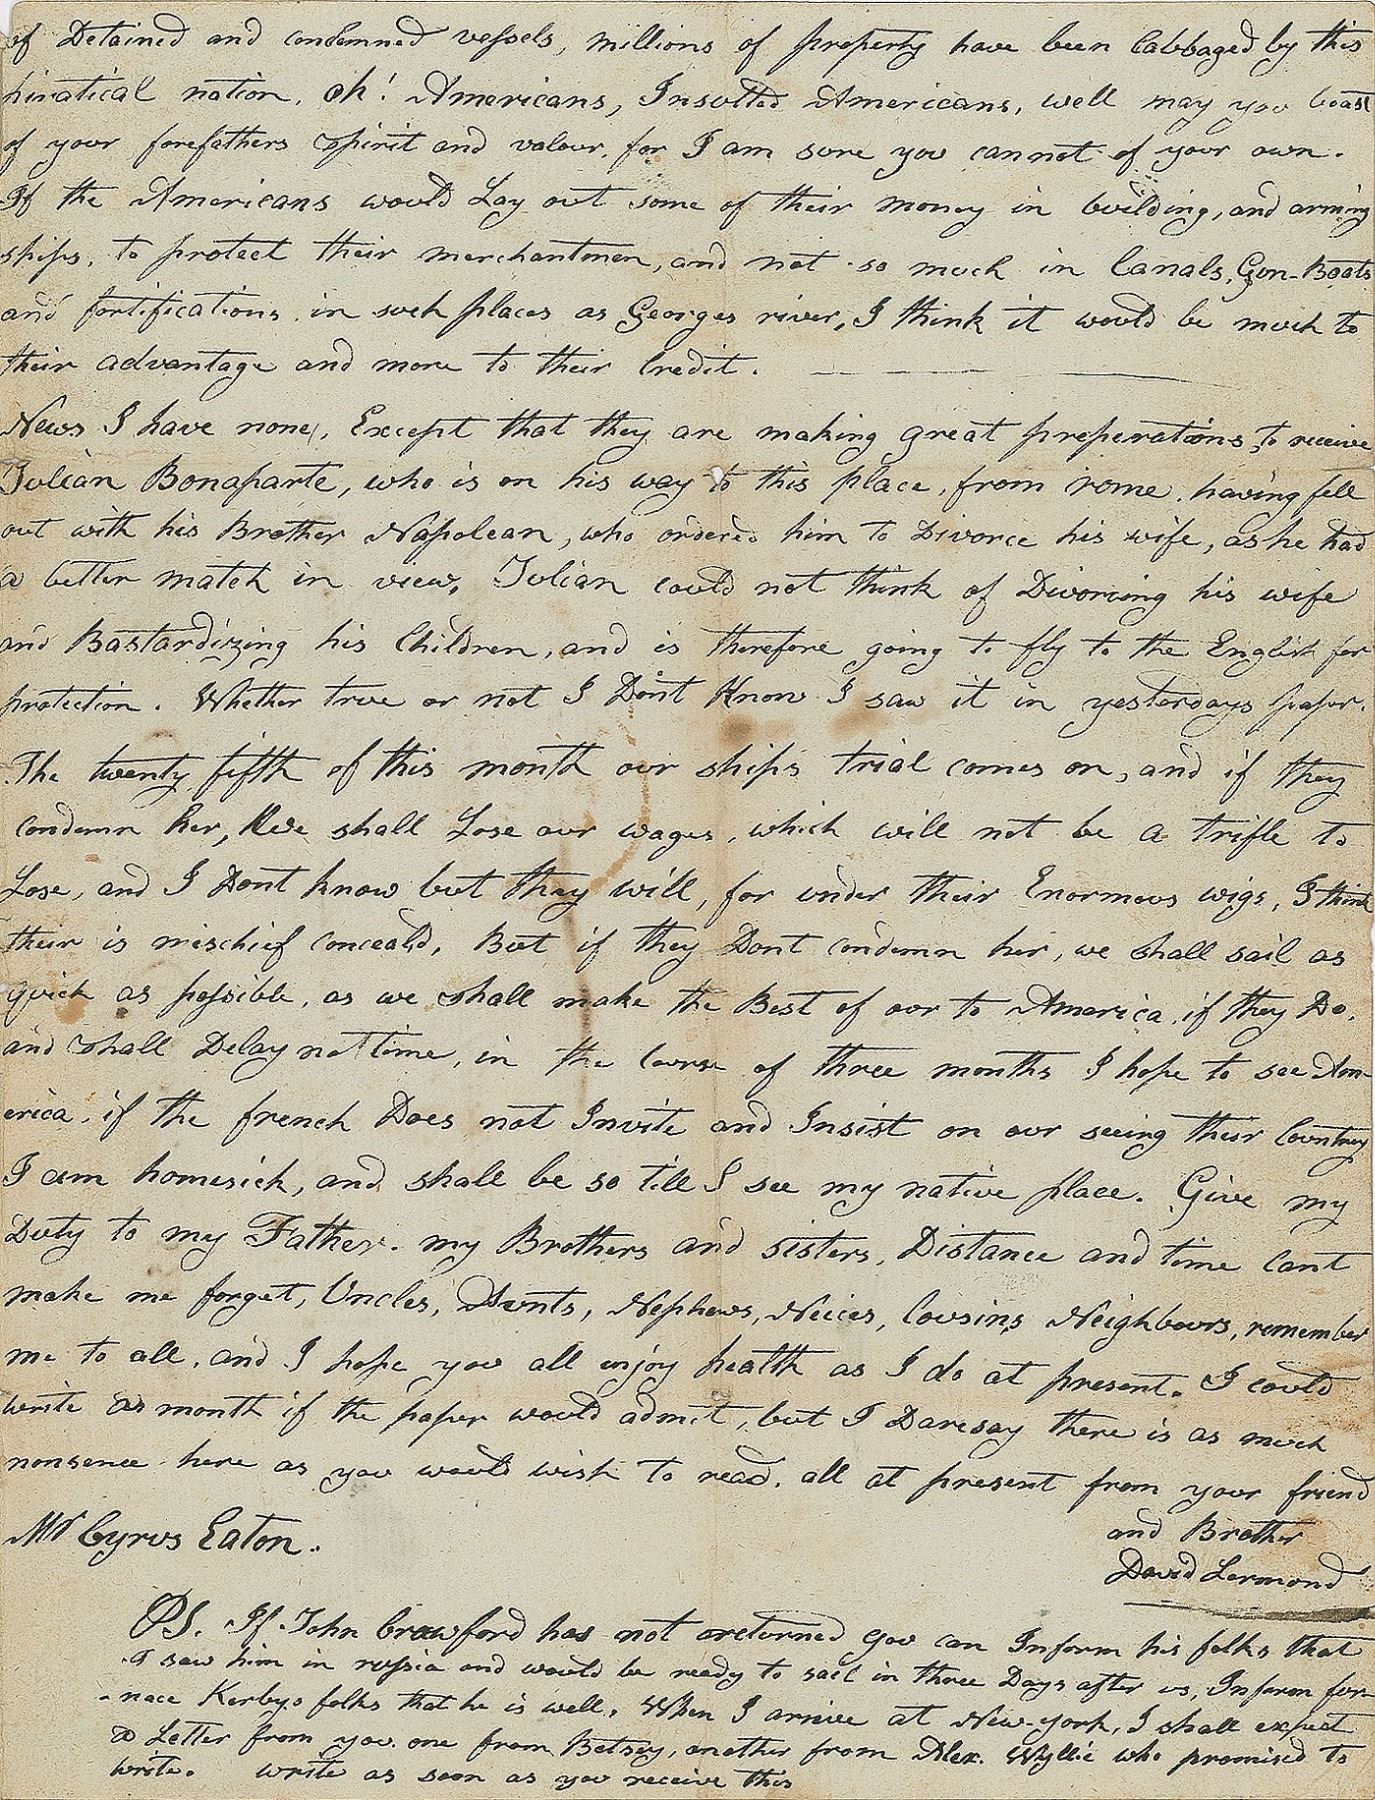 of Detained and condemned vessels, millions of property have been Cabbaged by this
piratical nation. oh! Americans, Insulted Americans, well may you boast
of your forefathers spirit and valour, for I am sure you cannot of your own.
If the Americans would Lay out some of their money in building, and arming
ships, to protect their merchantmen, and not so much in Canals, Gun-Boats
and fortifications in such places as Georges river, I think it would be much to
their advantage and more to their Credit.
News I have none, Except that they are making great preperations to receive
Julian Bonaparte, who is on his way to this place, from rome, having fell
out with his Brother Napolean, who ordered him to Divorce his wife, as he had
a better match in view, Julian could not think of Divorcing his wife
and Bastardizing his Children, and is therefore going to fly to the English for
protection. Whether true or not I Dont Know I saw it in yesterdays paper.
The twenty fifth of this month our ships trial comes on, and if they
condemn her, We shall Lose our wages, which will not be a trifle to
Lose, and I Dont know but they will, for under their Enormous wigs, I think
their is mischief conceald, But if they Dont condemn her, we shall sail as
quick as possible, as we shall make the Best of our to America, if they Do.
and shall Delay not time, in the Course of three months I hope to see Am-
erica, if the french Does not Invite and Insist on our seeing their Country
I am homesick, and shall be so till I see my native place. Give my
Duty to my Father. my Brothers and sisters, Distance and time Cant
make me forget, Uncles, Aunts, Nephews, Neices, Cousins Neighbours, remember
me to all, and I hope you all enjoy health as I do at present. I could
write a month if the paper would admit, but I Daresay there is as much
nonsence here as you would wish to read. all at present from your friend
and Brother
Mr Cyrus Eaton.
David Lermond
PS. If John Crawford has not returned you can Inform his folks that
I saw him in russia and would be ready to sail in three Days after us, Inform for-
nace Kerbys folks that he is well. When I arrive at New-york, I shall expect
a Letter from you one from Betsey, another from Alex. Wyllie who promised to
write. write as soon as you receive this